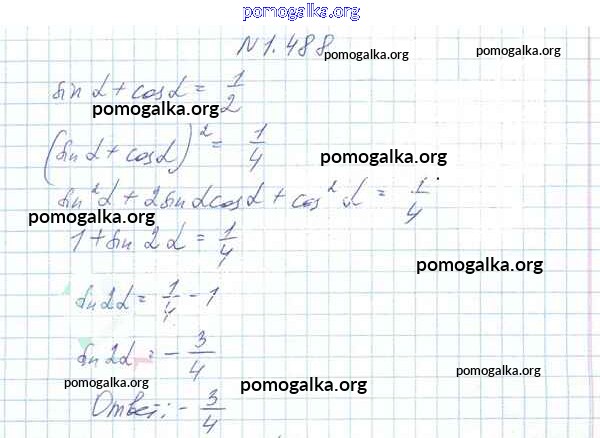 pomogalka.org
N 1.488
pomogalka.org pomogalka.org
sin α + cos α = 1/2
pomogalka.org
(sin α + cos α)² = 1/4
pomogalka.org
sin² α + 2 sin α cos α + cos² α = 1/4
pomogalka.org
1 + sin 2α = 1/4
pomogalka.org
sin 2α = 1/4 - 1
sin 2α = - 3/4
pomogalka.org pomogalka.org pomogalka.org
Ответ: - 3/4